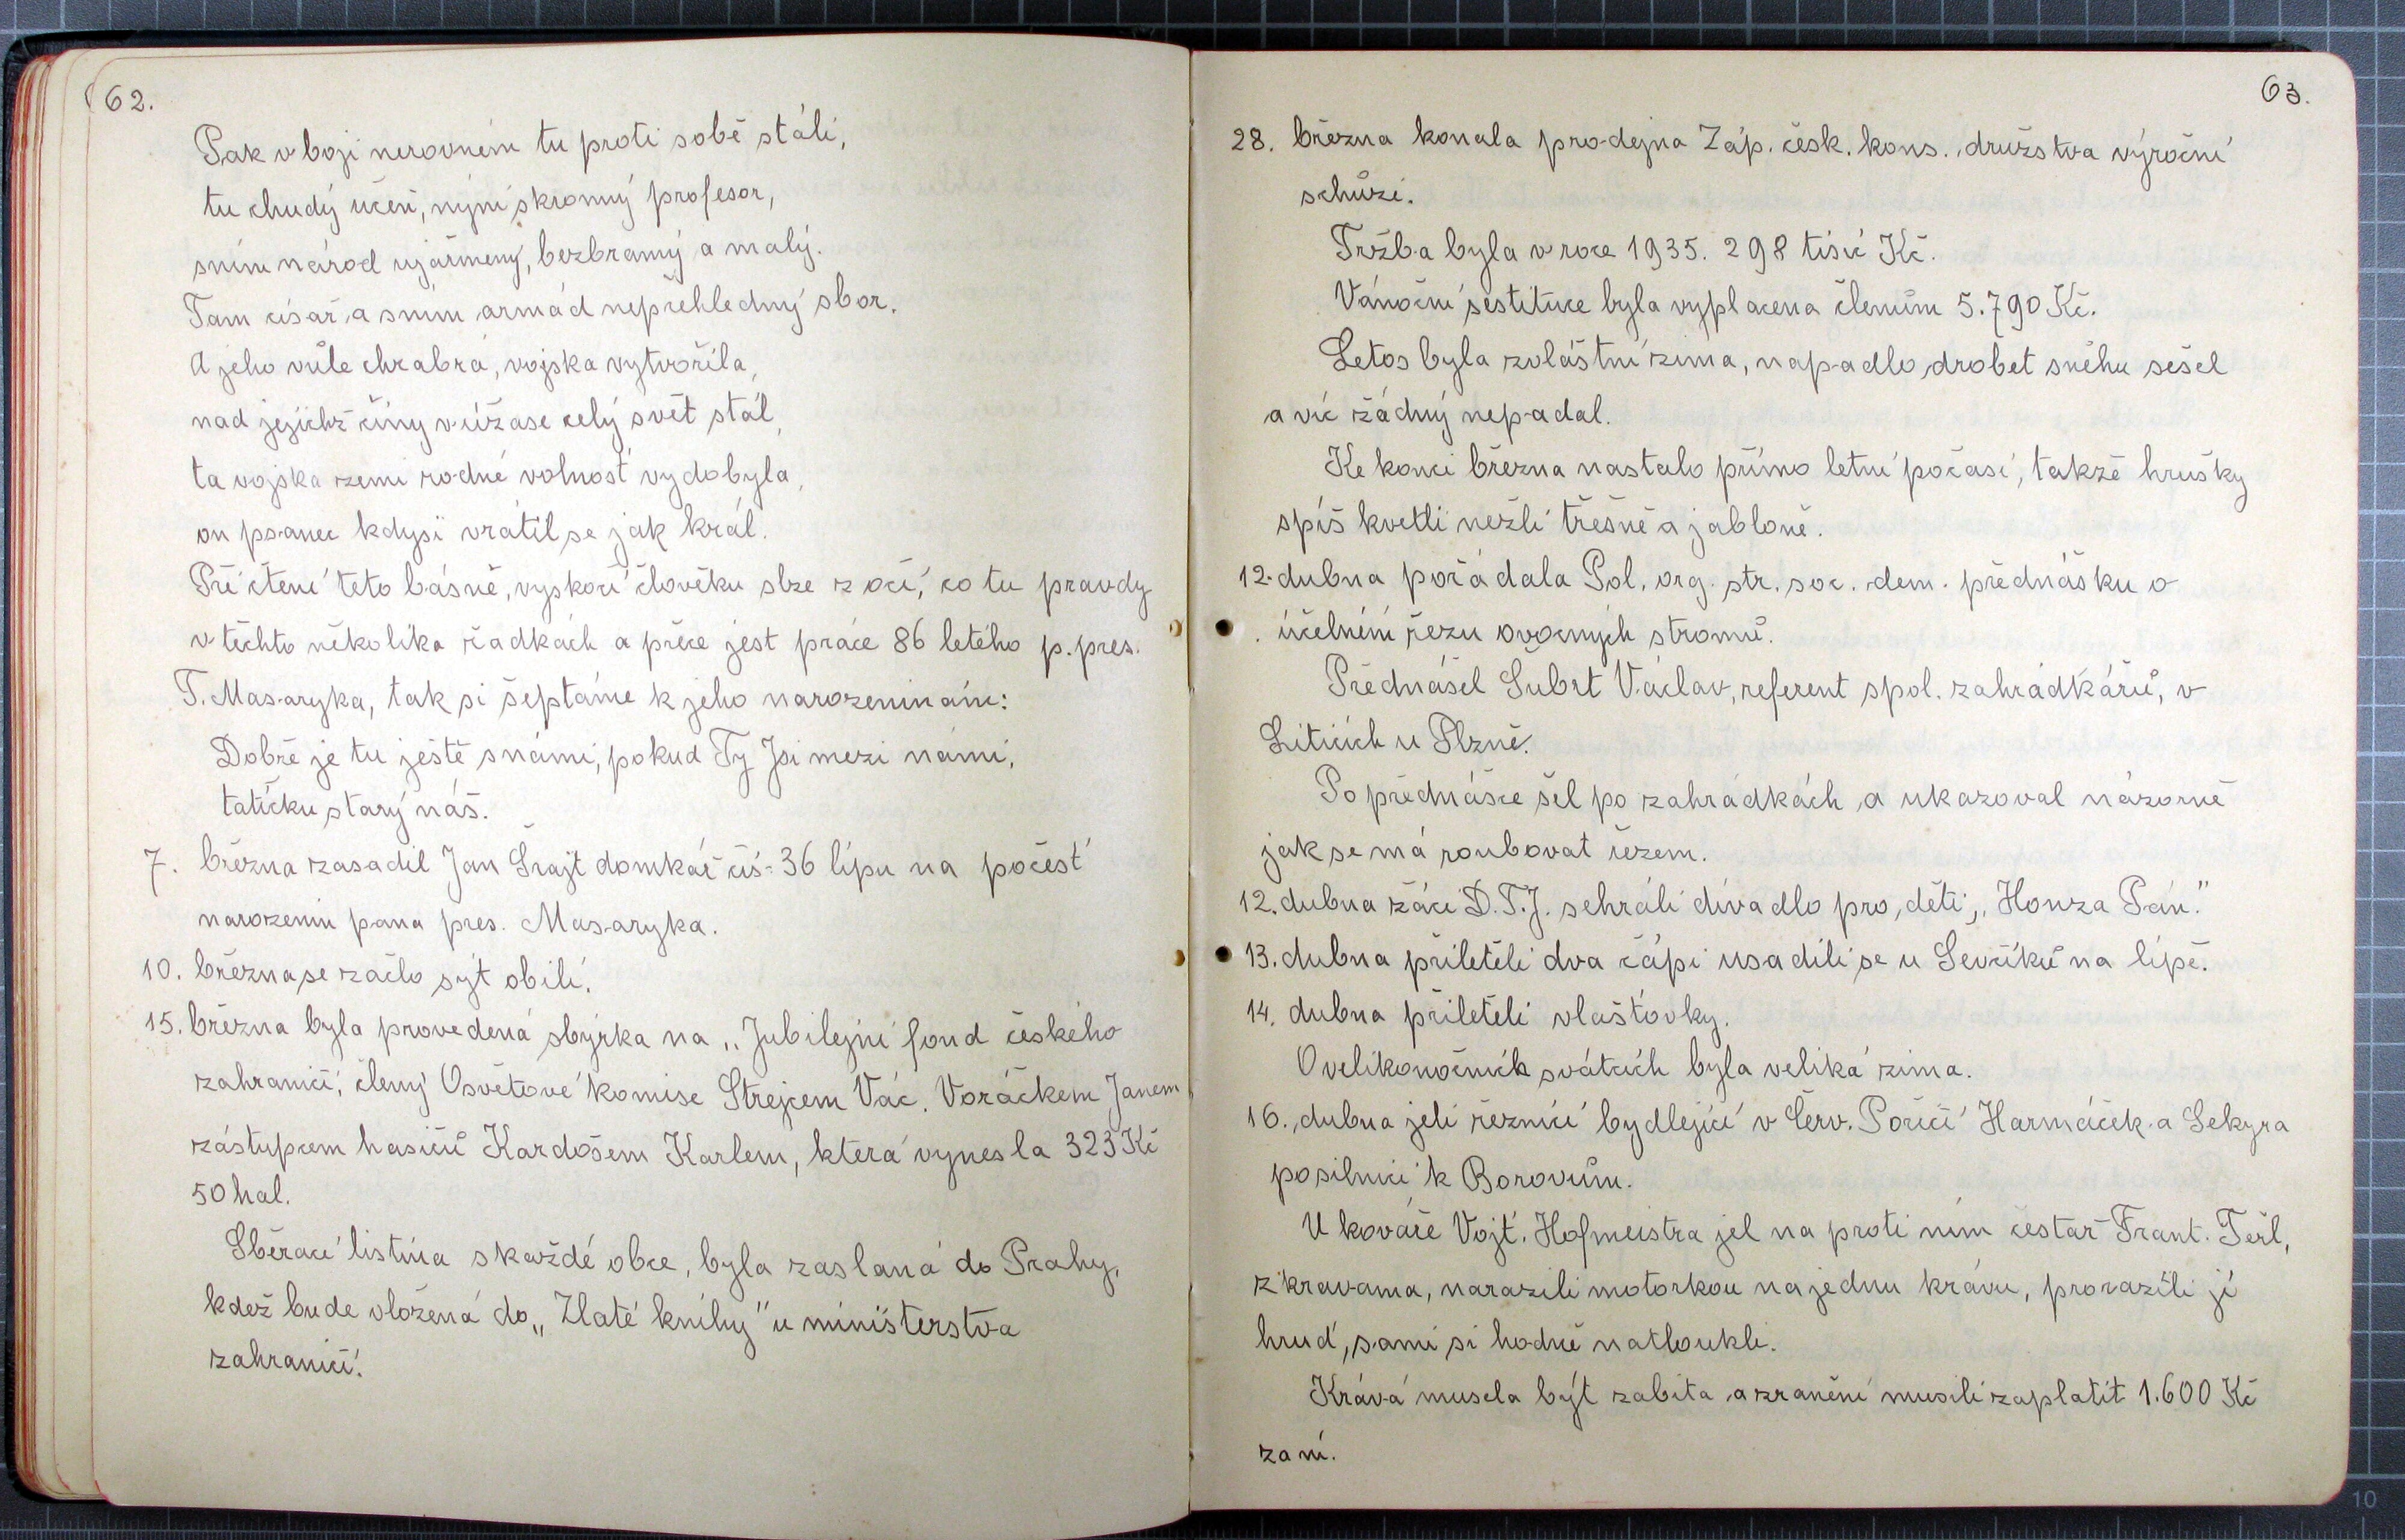 62.
Pak v boji nerovném tu proti sobě stáli,
tu chudý učeň, nýní skromný profesor,
sním národ ujařmený, bezbramý a malý.
Tam císař a sním armád nepřehledný sbor.
A jeho vůle chrabrá, vojska vytvořila,
nad jejichž činy v úžase celý svět stál,
ta vojska zemi rodné volnost vydobyla,
on psanec kdysi vrátil se jak král.
Při čtení této básně, vyskočí člověku slze z očí, co tu pravdy
v těchto několika řadkách a přece jest práce 86 letého p. pres.
T. Masaryka, tak si šeptáme k jeho narozeninám:
Dobře je tu ještě snámi, pokud Ty Jsi mezi námi,
tatíčku starý náš.
7. března zasadil Jan Šrajt domkář čís-36 lípu na počest
narozenin pana pres. Masaryka.
10. března se začlo sýt obilí.
15. března byla provedená sbýrka na „Jubilejní fond českého
zahraničí, členy Osvětové komise Strejcem Vác. Voráčkem Janem
zástupcem hasičů Kardošem Karlem, která vynesla 323 Kč
50 hal.
Sběrací listina skaždé obce, byla zaslaná do Prahy,
kdež bude vložená do „Zlaté knihy" u ministerstva
zahraničí.
63.
28. března konala prodejna Záp. česk. kons. družstva výroční
schůzi.
Tržba byla v roce 1935. 298 tisíc Kč.
Vánoční sestituce byla vyplacena členům 5.790 Kč.
Letos byla zvláštní zima, napadlo drobet sněhu sešel
a víc žádný nepadal.
Ke konci března nastalo přímo letní počasí, takže hrušky
spíš kvetli nežli třešně a jabloně.
12. dubna pořádala Pol. org. str. soc. dem. přednášku o
účelném řezu ovocných stromů.
Přednášel Šubrt Václav, referent spol. zahrádkářů, v
Liticích u Plzně.
Po přednášce šel po zahrádkách a ukazoval názorně
jak se má roubovat řezem.
12. dubna žáci D.T.J. sehráli divadlo pro děti „Honza Pán."
13. dubna přiletěli dva čápi usadili se u Ševčíků na lípě.
14. dubna přiletěli vlaštovky.
O velikonočních svátcích byla veliká zima.
16. dubna jeli řezníci bydlející v Červ. Poříčí Harmáček a Sekyra
po silnici k Borovům.
U kováře Vojt. Hofmeistra jel na proti ním cestář Frant. Teřl,
z kravama, narazili motorkou na jednu krávu, prorazili jí
hruď, sami si hodně natloukli.
Kráva musela být zabita a zranění musili zaplatit 1.600 Kč
za ní.
10